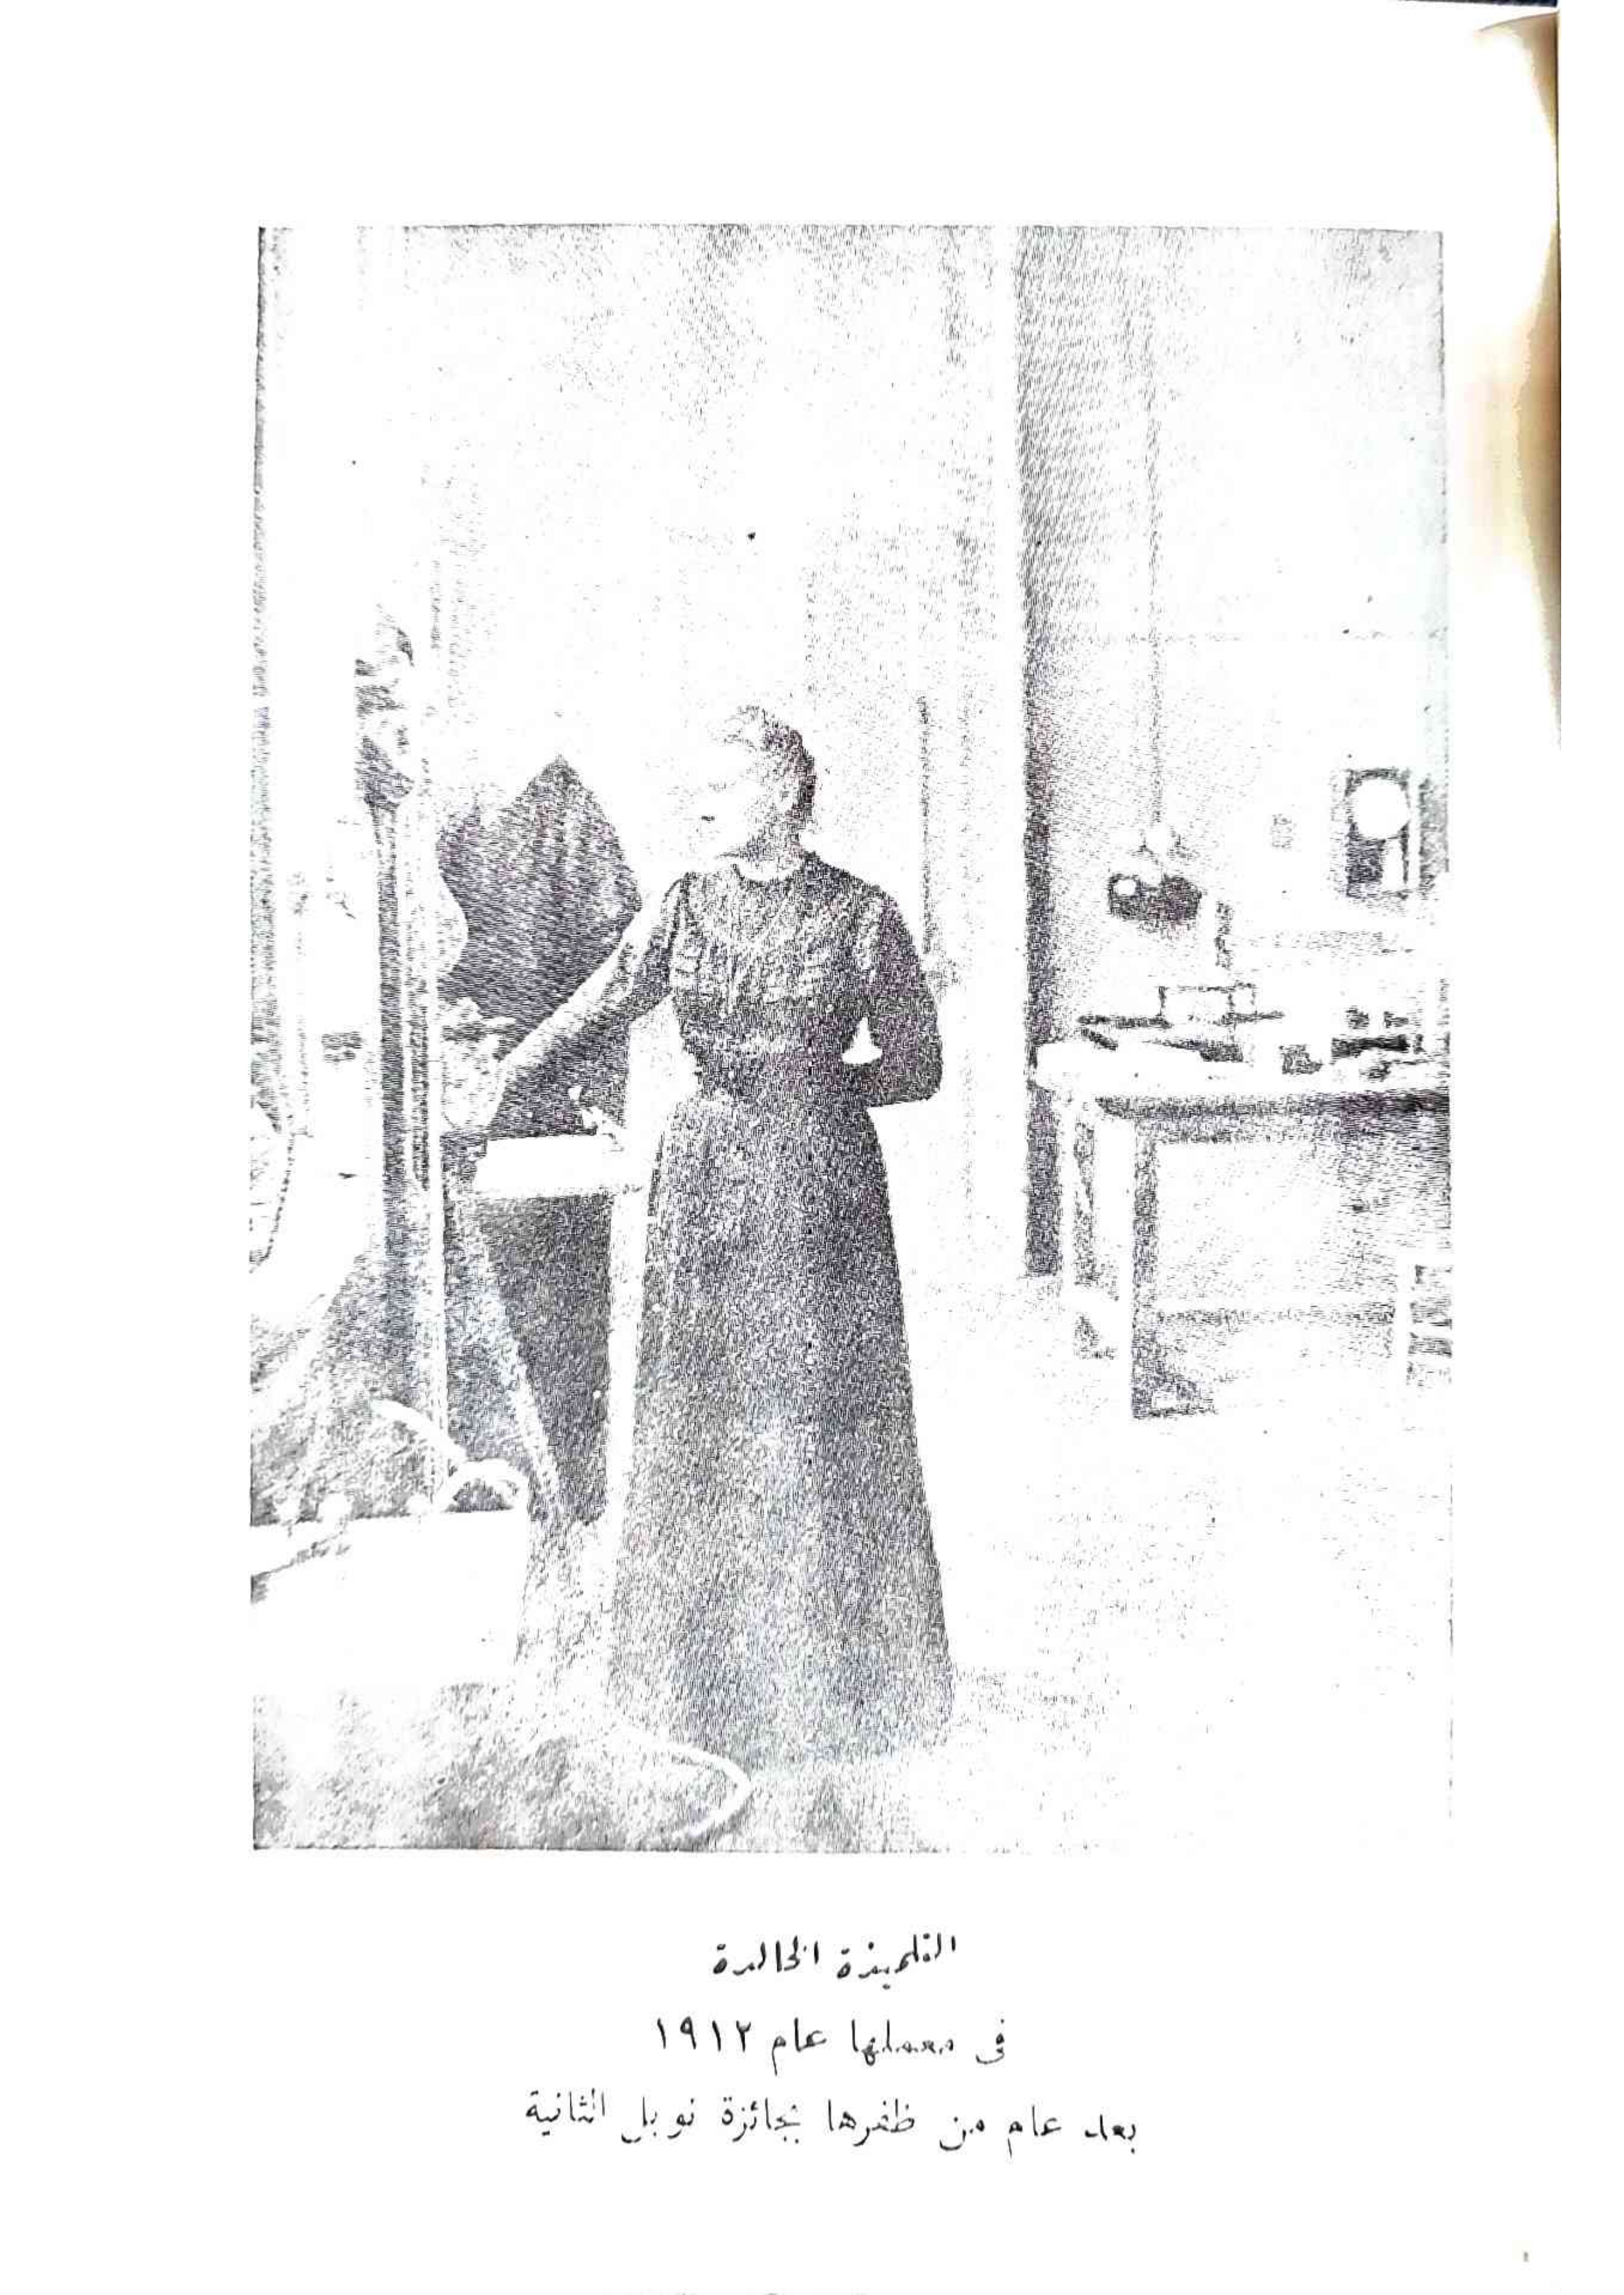 التلميذة الخالدة
فى معملها عام ١٩١٢
بعد عام من ظفرها بجائزة نوبل الثانية